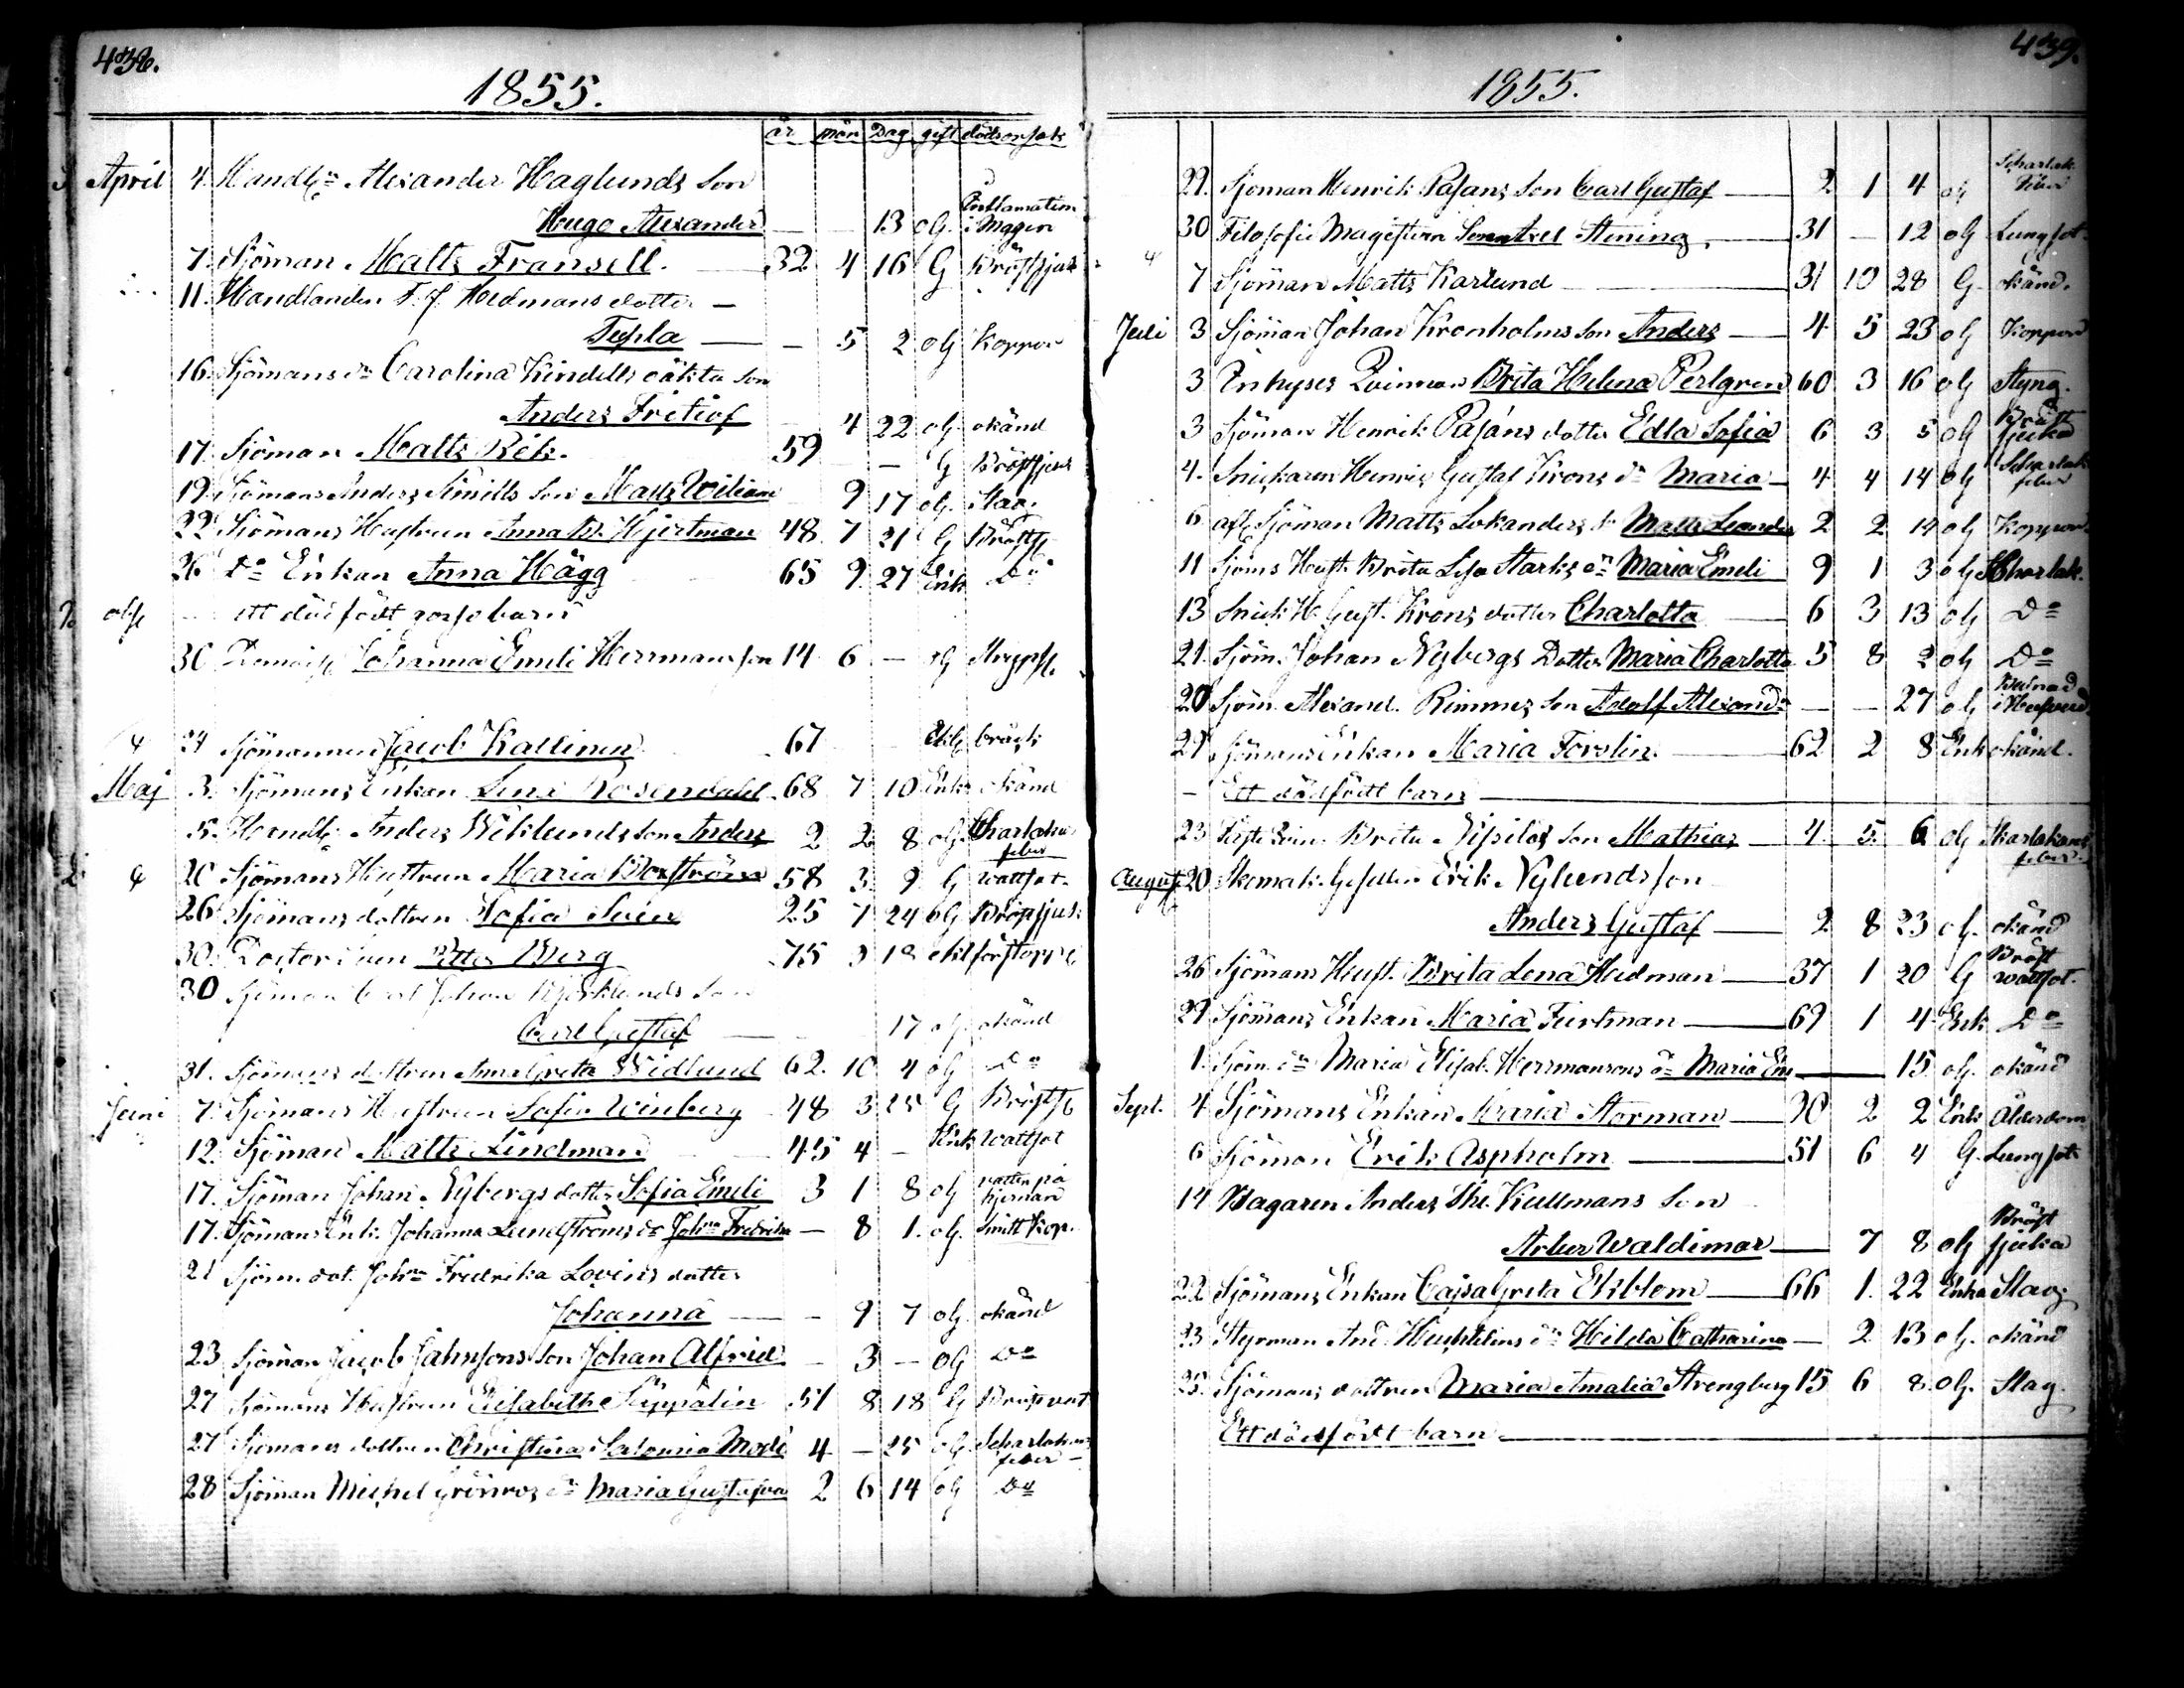 438.
1855.
år mån Dag gift dödsorsak
April 4. Handl:n Alexander Haglunds Son
Hugo Alexander — — 13 og. Inflamation i Magen
7. Sjöman Matts Fransell. 32 4 16 G Bröstsjuk
11. Handlanden F. J. Hedmans dotter —
Tekla — — 5 2 oG Koppor
16. Sjömans d:r Carolina Kindells oäkta son
Anders Fritiof 4 22 og. okänd
17. Sjöman Matts Rék. 59 — G Bröstsjuk
19. Sjömans Anders Simills Son Matts Wiliam 9 17 og. Slag.
22. Sjömans Hustrun Anna B. Hjertman 48. 7 21 G Bröstsj
26 D:o Enkan Anna Hägg 65 9. 27 Enk D:o
— ett dödfödt gossebarn
30 Johanna Emeli Herrmansson 14 6 — og
24 Sjömannen Jacob Kallinen 67 Ekl bråck
Maj 3. Sjömans Enkan Lena Rosendahl 68 7 10 Enk okänd
5. Handl: Anders Wiklunds son Anders 2 2 8 og. Charlakans feber
20 Sjömans Hustrun Maria Boström 58 3. 9 G wattsot.
26 Sjömans dottren Sofia Sven 25 7 24 oG Bröstsjuk
30. Petter Berg 75 9 18 ekl förstopp
30 Sjöman Carl Johan Björklunds Son
Carl Gustaf — 17 og. okänd
31. Sjömans dottren Anna Greta Widlund 62. 10 4 og D:o
Juni 7. Sjömans Hustrun Sofia Winberg 48 3 25 G Bröstsj
12. Sjöman Matts Lindman 45 4 — Enk wattsot
17. Sjöman Johan Nybergs dotter Sofia Emeli 3 1 8 og vatten på hjernan
17. Sjömans Enk. Johanna Lundströms d:r Joh:na Fredrika — 8 1. og. Smitt Kop.
21 Sjöm. dot. Joh:na Fredrika Lovins dotter
Johanna — — 9 7 og. okänd
23 Sjöman Jacob Jahnssons Son Johan Alfrid — 3 — og D:o
27 Sjömans Hustrun Elisabeth Seppälin 51 8 18 G Bröst vat
27 Sjömans dottren Christina Salomia Modé 4 — 25 og. Scharlakans feber
28 Sjöman Michel Grönroos d:r Maria Gustafva 2 6 14 og D:o
439.
1855.
29. Sjöman Henrik Pasans Son Carl Gustaf — 2 1 4 og Scharlak. Feber
30 Filosofie Magistern Stening. — 31 — 12 oG Lungsot
7 Sjöman Matts Karlund — 31 10 28 G. okänd.
Juli 3 Sjöman Johan Kronholms son Anders — 4 5 23 og Koppor
3 Inhyses Qvinnan Brita Helena Perlgren 60 3 16 og Styng.
3 Sjöman Henrik Pasáns dotter Edla Sofia 6 3 5 og Bröst sjuka
4. Snickaren Henric Gustaf Krons d:r Maria — 4 4 14 og Scharlak feber
6 afl. Sjöman Matts Lokanders Matts Leander 2 2 14 og Koppor
11 Sjöms Hust. Brita Lisa Starks d:r Maria Emeli 9 1 3 og Scharlak.
13 Snick H. Gust. Krons dotter Charlotta 6 3 13 og D:o
21. Sjöm. Johan Nybergs Dotter Maria Charlotta 5 8 2 og D:o
20 Sjöm. Alexand. Rimmes Son Adolf Alexand:r — — 27 og
29 Sjömans Enkan Maria Forslin. — 62 2 8 Enk okänd.
— Ett dödfödt barn —
23 Brita Nissilas Son Mathias — 4. 5. 6 og Skarlakans feber
August 20 Skomak. Gesellen Erik Nylunds son
Anders Gustaf — 2 8 23 og. okänd
26 Sjömans Hust. Brita Lena Hedman — 37 1 20 G Bröst wattsot.
29 Sjömans Enkan Maria Furtman — 69 1 4 Enk D:o
1. Sjöm. d:r Maria Elisab. Herrmansons d:r Maria Em — 15. og. okänd
Sept. 4 Sjömans Enkan Maria Storman — 90 2 2 Enk Ålderdom
6 Sjöman Erik Aspholm — 51 6 4 G. Lungsot
14 Bagaren Anders Kullmans Son
Artur Waldimar — 7 8 og Bröst sjuka
22. Sjömans Enkan Cajsa Greta Ekblom — 66 1. 22 Enka Slag
23 Styrman And. d:r Hilda Catharina — 2 13 og. okänd
25. Sjömans dottren Maria Amalia Strengberg 15 6 8. og. Slag.
Ett dödfödt barn —